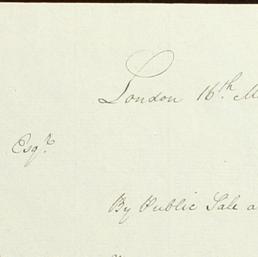 London 16th. M
Esqr.
By Public Sale a